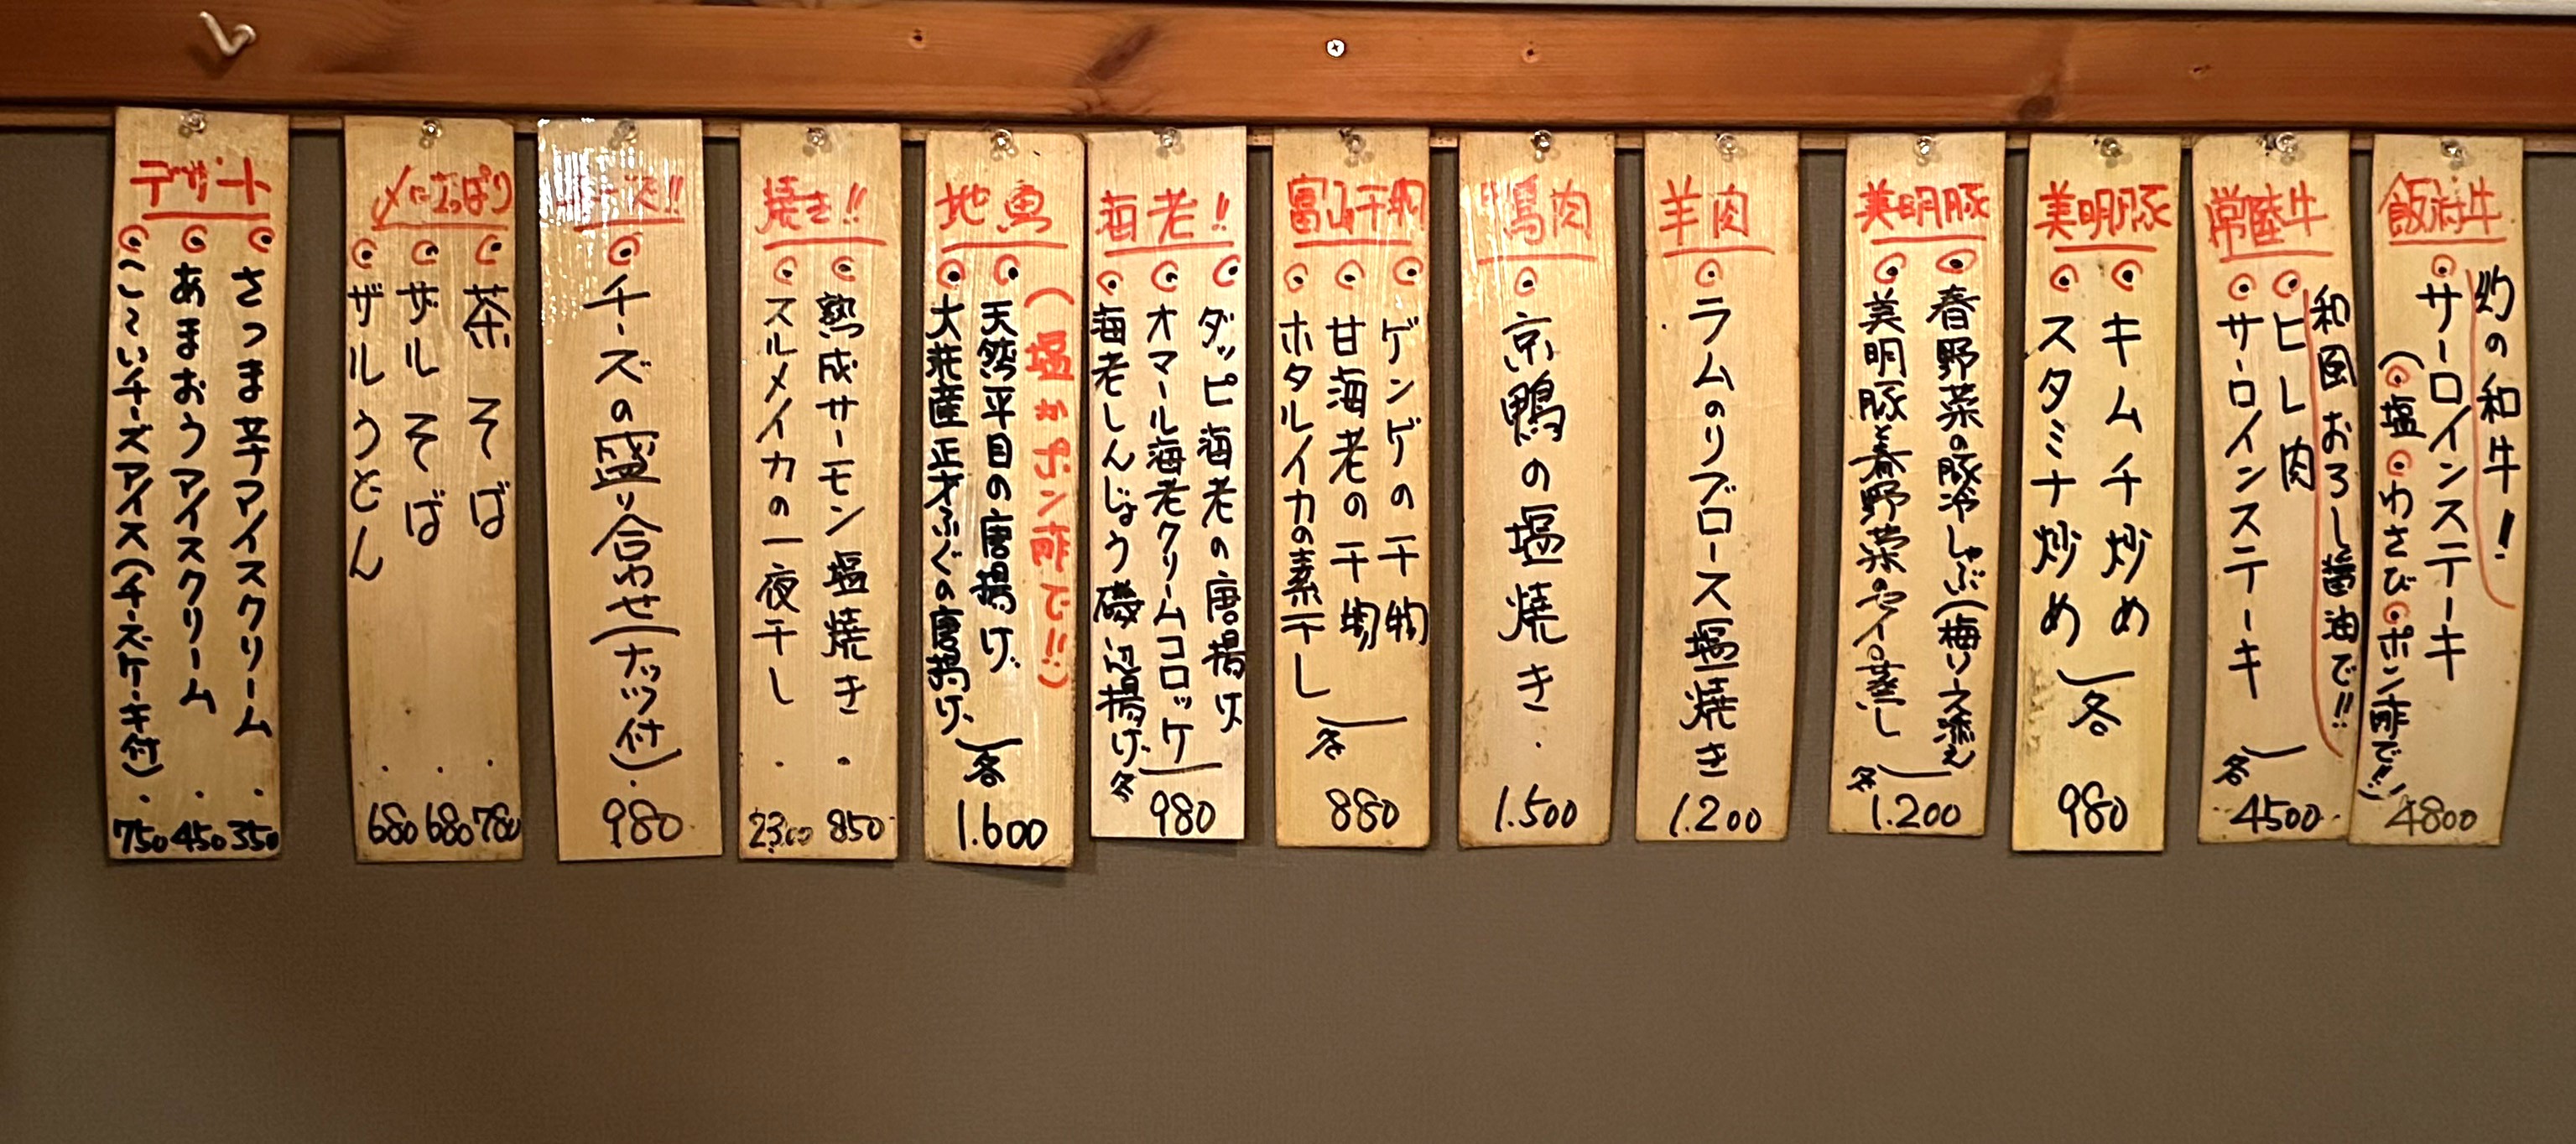 飯村牛
幻の和牛!
サーロインステーキ
(塩 わさび ポン酢で!!)
4800
常陸牛
和風おろし醤油で!!
ヒレ肉
サーロインステーキ
各
4500
美明豚
キムチ炒め
スタミナ炒め
各
980
美明豚
春野菜の豚冷しゃぶ(梅ソース添え
美明豚と春野菜のセイロ蒸し
各
1.200
羊肉
ラムのリブロース塩焼き
1.200
鴨肉
京鴨の塩焼き
1.500
富山干物
ゲンゲの干物
甘海老の干物
ホタルイカの素干し
各
880
海老!
ダッピ海老の唐揚げ
オマール海老クリームコロッケ
海老しんじょう磯辺揚げ
各
980
地魚
(塩かポン酢で!!)
天然平目の唐揚げ
大洗産正才ふぐの唐揚げ
各
1.600
焼き!!
熟成サーモン塩焼き
850
スルメイカの一夜干し
2300
チーズの盛り合わせ(ナッツ付)
980
〆にさっぱり
茶そば
780
ザルそば
680
ザルうどん
680
デザート
さつま芋アイスクリーム
350
あまおうアイスクリーム
450
こ〜いチーズアイス(チーズケーキ付)
750